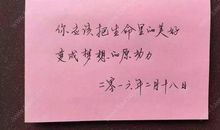 你应该把生命里的美好
变成梦想的原动力
二零一六年二月十八日